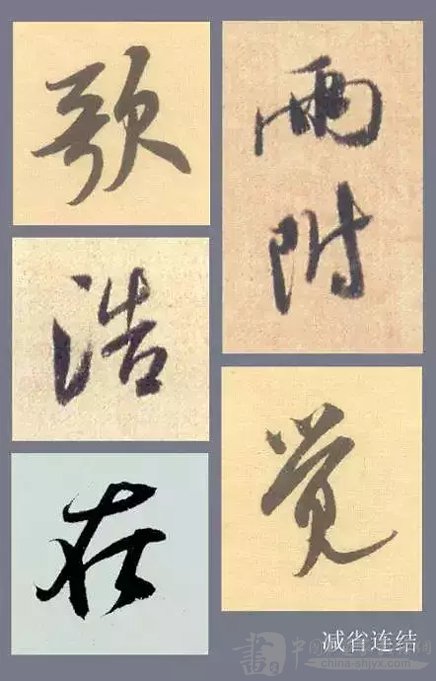 歌
雨
附
浩
觉
在
减省连结
china-shjyx.com